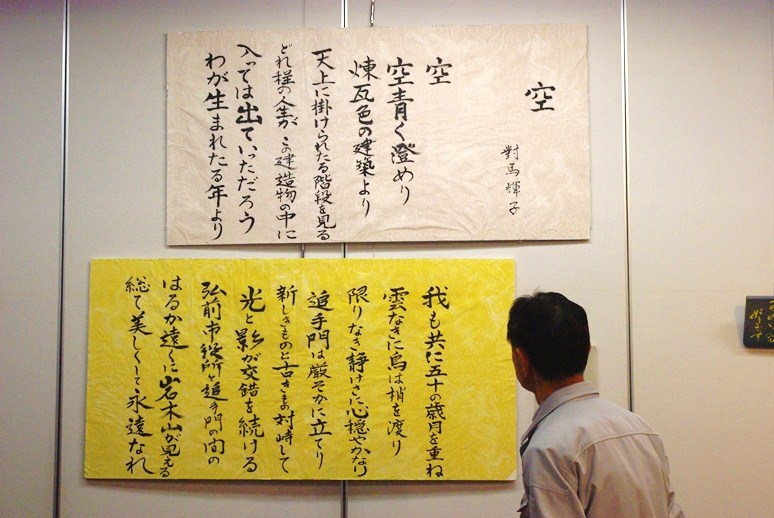 空
對馬輝子
空
空青く澄めり
煉瓦色の建築より
天上に掛けられたる階段を見る
どれ程の人生がこの建造物の中に
入っては出ていっただろう
わが生まれたる年より
我も共に五十の歳月を重ね
雲なきに鳥は梢を渡り
限りなき静けさに心穏やかなり
追手門は厳そかに立てり
新しきものと古きもの対峙して
光と影が交錯を続ける
弘前市役所と追手門の間の
はるか遠くに岩木山が見える
総て美しくして永遠なれ